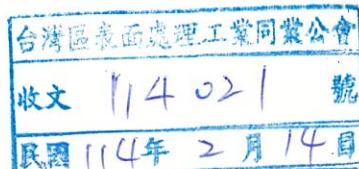 台灣區表面處理工業同業公會
收文 114021 號
民國 114年 2月 14日